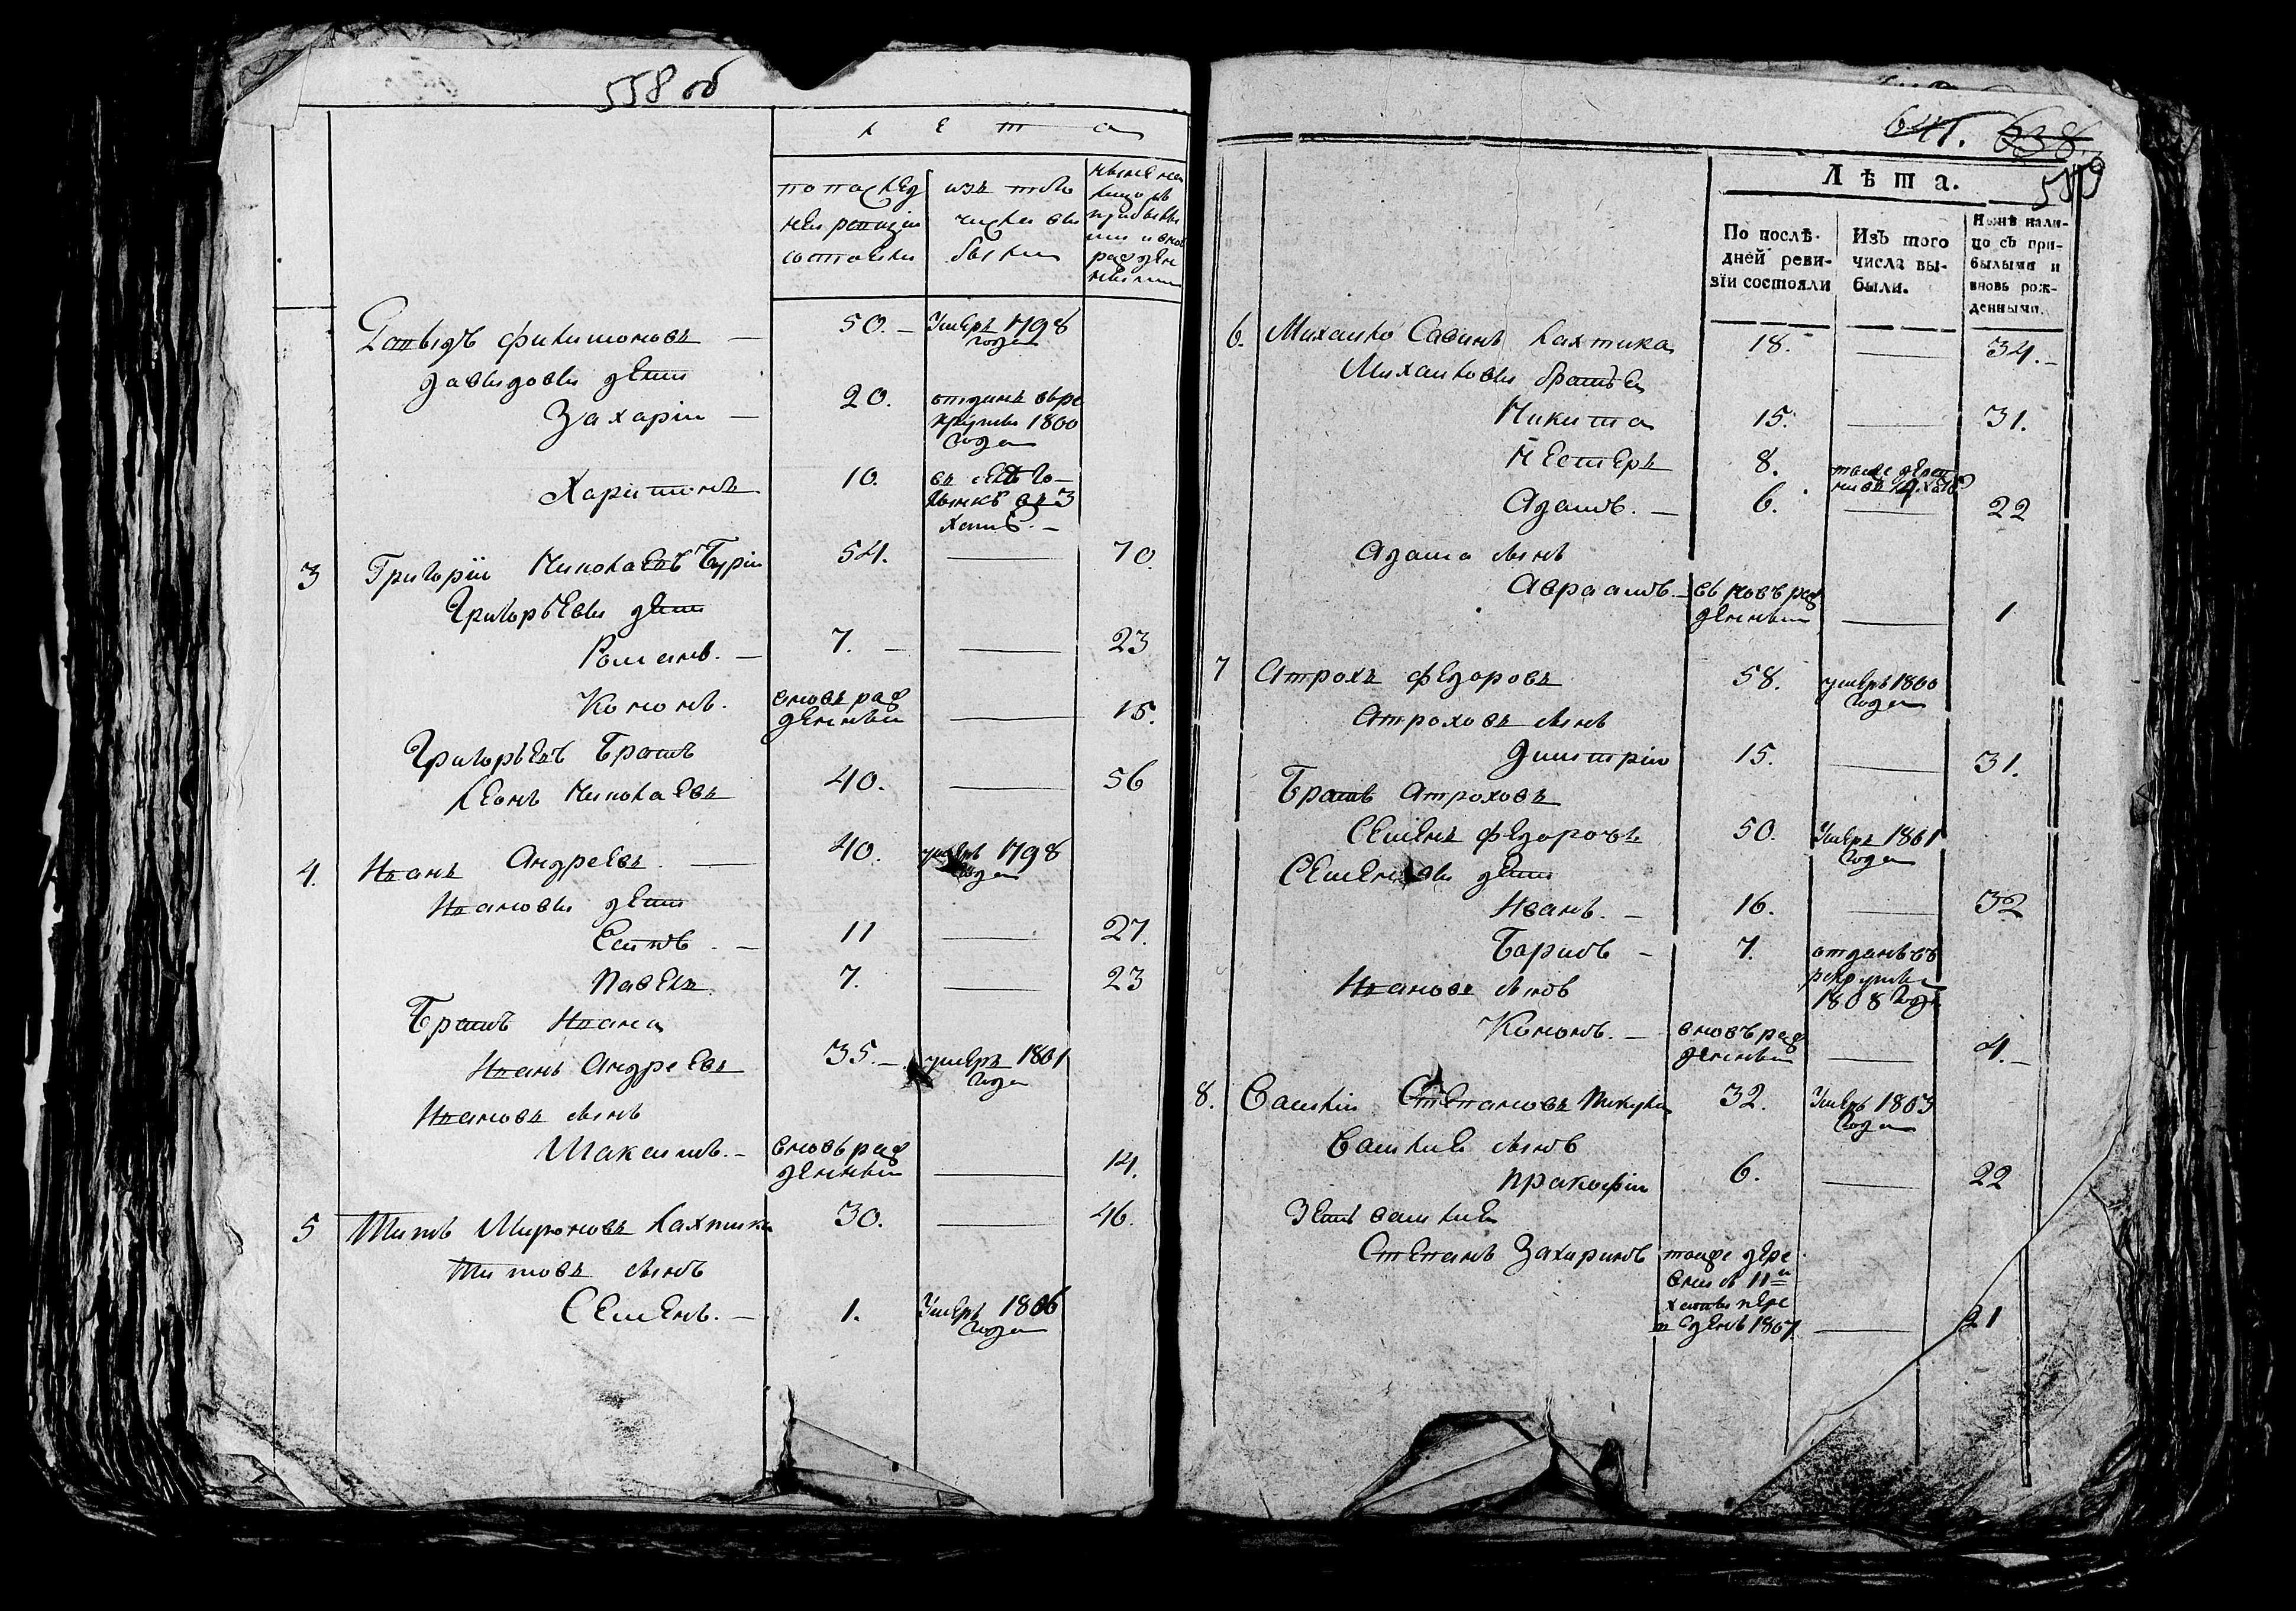 558 об
лета
по послед
ней ревизии
состояли
изъ того
числа вы
были
ныне на
лицо съ
прибылы
ми и внов
рожден
ными
Давыдъ Филимоновъ — 50. — Умеръ 1798
года
Давыдовы дети
Захарiи — 20. отданъ въ ре
круты 1800
года
Харитонъ 10. въ селе Го-
въ 3
хате. —
3 Григорiи Николаевъ Бурiи 54. — 70.
Григорьевы дети
Романъ. — 7. — — 23
Кононъ. вновь рож
денныи — 15.
Григорьевъ братъ
Леонъ Николаевъ 40. — 56
4. Иванъ Андреевъ — 40. умеръ 1798
года
Ивановы дети
Есипъ. — 11 — 27.
Павелъ. 7. — 23
Братъ Ивана
Иванъ Андреевъ 35. — умеръ 1801
года
Ивановъ сынъ
Максимъ. — вновь рож
денныи — 14.
5 Титъ Мироновъ Лахтика 30. — 46.
Титовъ сынъ
Семенъ. — 1. Умеръ 1806
года
641. 638.
559
Лѣта.
По послѣ-
дней реви-
зїи состояли
Изъ того
числа вы-
были.
Нынѣ нали-
цо съ при-
былыми и
вновь рож-
денными.
6. Михаило Савинъ Лахтика 18. — 34. —
Михаиловы братья
Никита 15. — 31.
Нестеръ 8. тоже дерев
ни въ 14 хате
Адамъ. — 6. — 22
Адама сынъ
Авраамъ — вновъ рож
денныи — 1
7 Атрохъ Федоровъ 58. умеръ 1800
года
Атроховъ сынъ
Дмитрiи 15. — 31.
Братъ Атроховъ
Семенъ Федоровъ 50. Умеръ 1801
года
Семеновы дети
Иванъ. — 16. — 32
Барисъ — 7. отданъ въ
рекруты
1808 года
Ивановъ сынъ
Кононъ. — вновъ рож
денныи — 4. —
8. Василiи Степановъ Пикула 32. Умеръ 1803
года
Василиевъ сынъ
Пракофiи 6. — 22
Зеть Василия
Степанъ Захариновъ тоиже дере
вни съ 11и
хаты пере
веденъ 1807 — 21